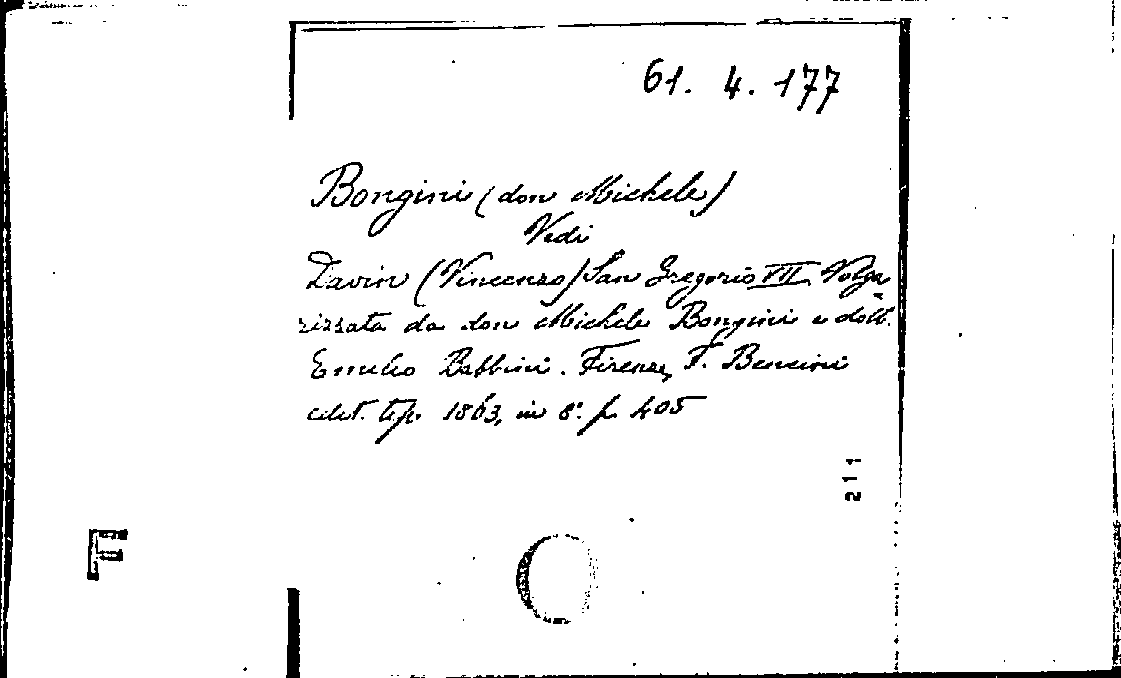 61. 4. 177
Bongini (don Michele)
Vedi
Davin (Vincenzo) San Gregorio VII. Volga
rizzata da don Michele Bongini e dott.
Emilio Babbini. Firenze, F. Bencini
edit. tip. 1863, in 8.° p. 405
211
F